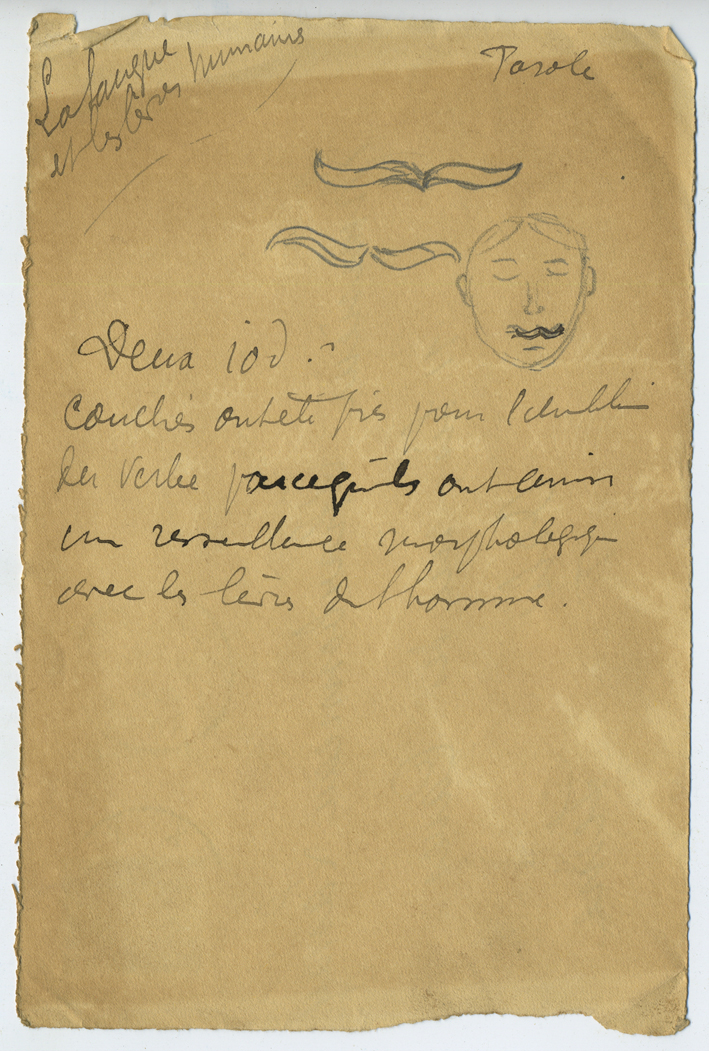 La langue
et les lèvres humains
Parole
Deux iod :
Couchés ont été pris pour l'emblème
du Verbe parcequ'ils ont
une ressemblance morphologique
avec les lèvres de l'homme.